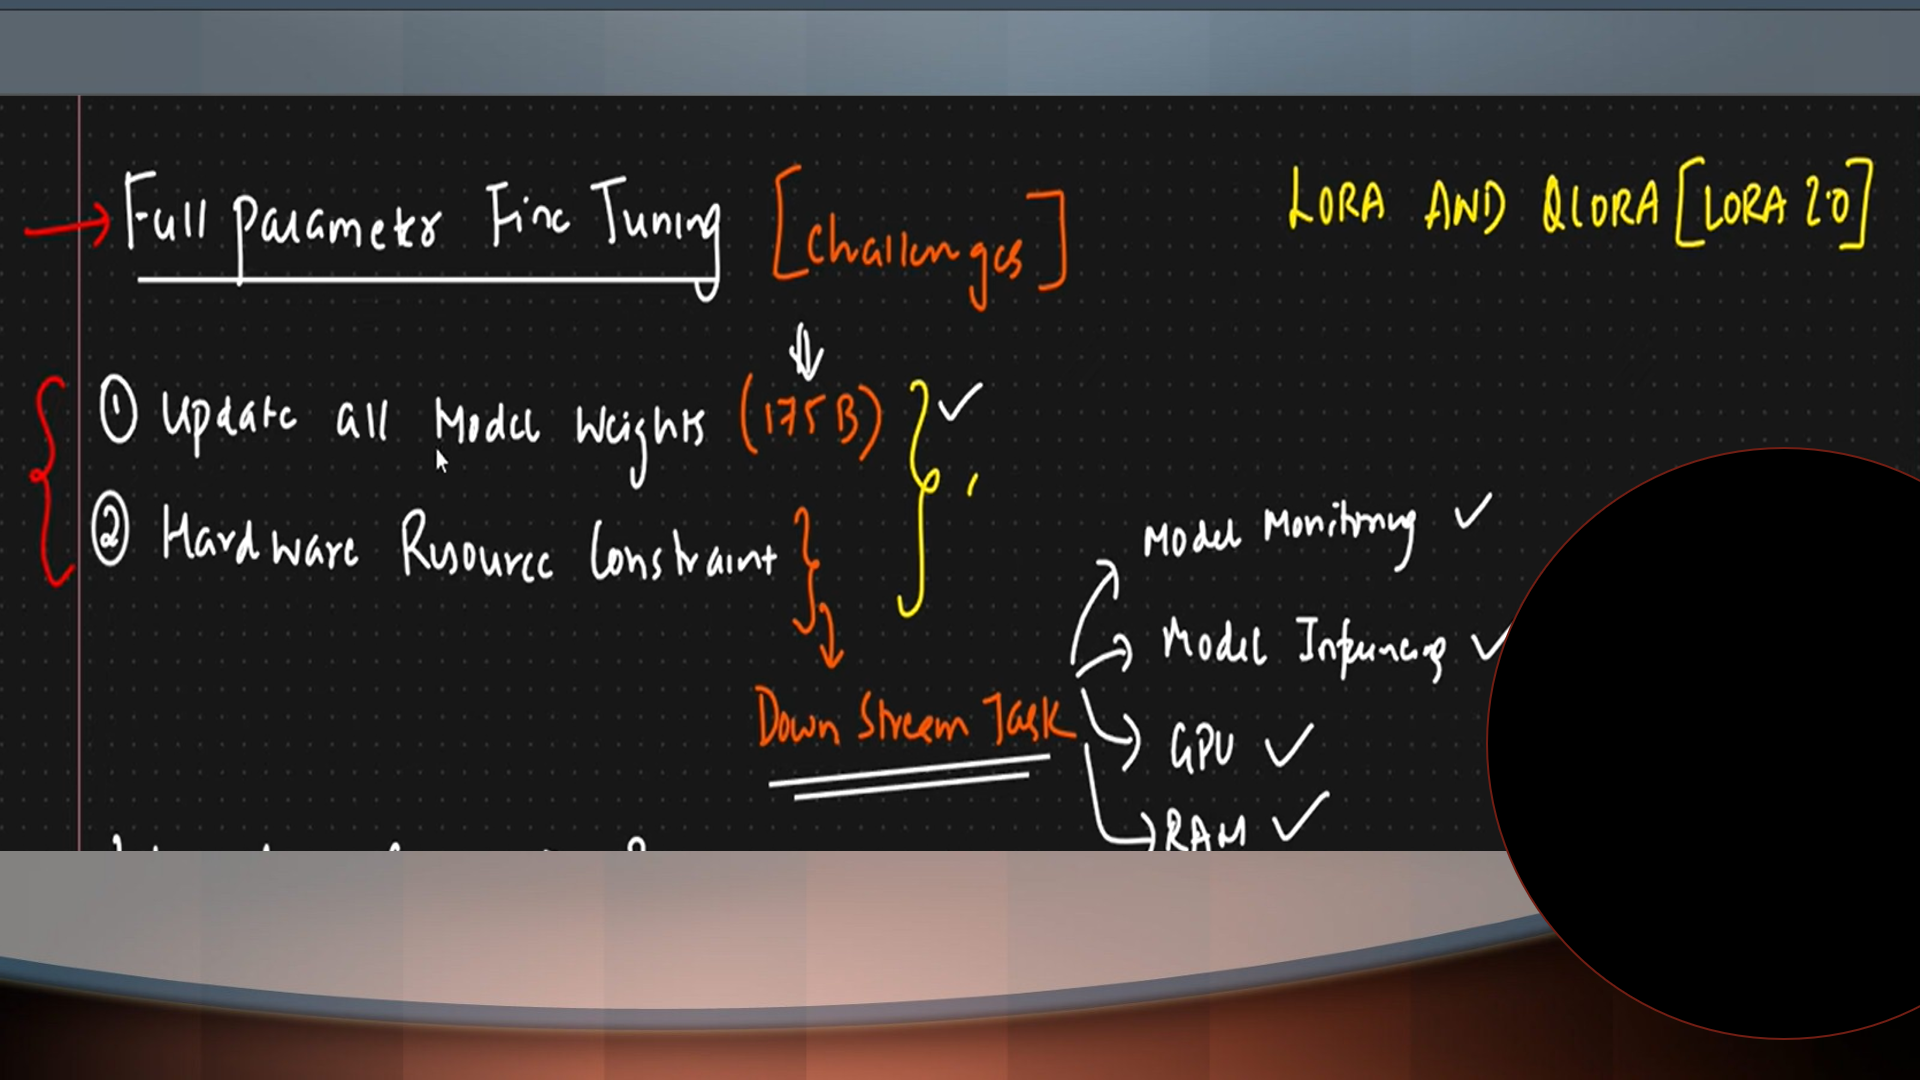 Full Parameter Fine Tuning [Challenges]
LORA AND QLORA [LORA 2.0]
① Update all Model Weights (175B)
② Hardware Resource Constraint
Model Monitoring
Model Inferencing
Down Stream Task
GPU
RAM